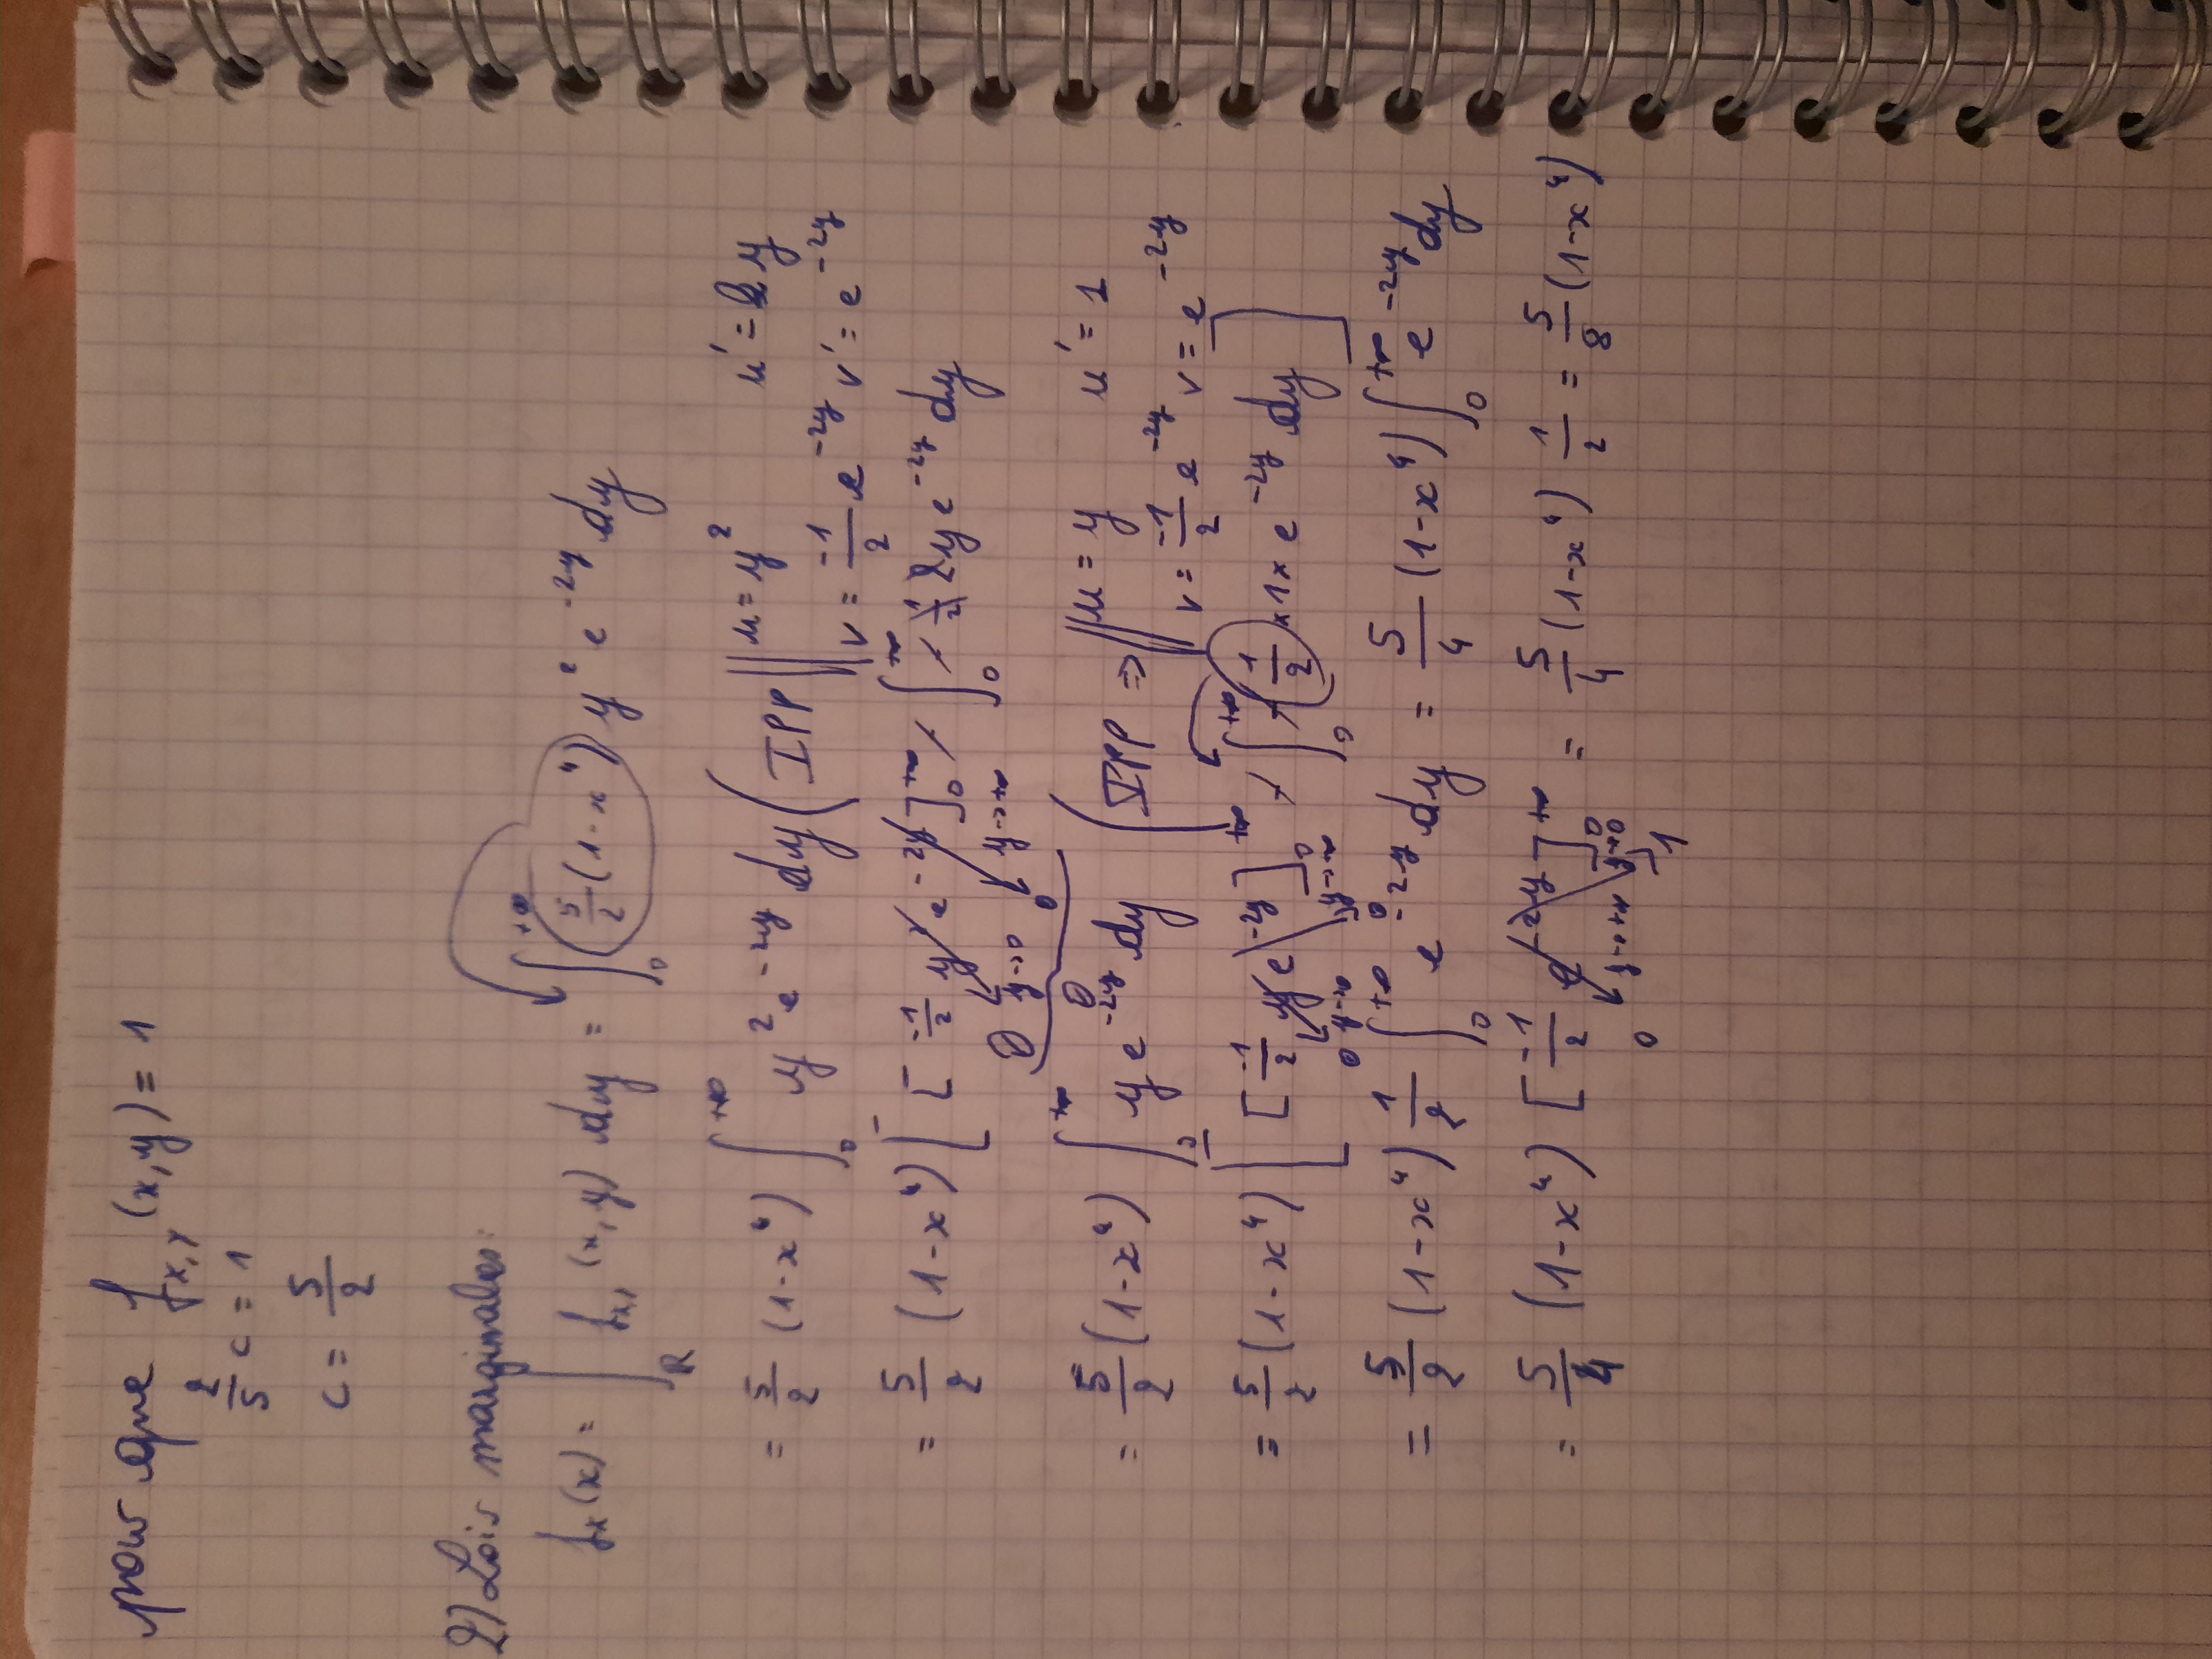 pour que f_{X,Y}(x,y) = 1
2/5 c = 1
c = 5/2
2) Lois marginales:
f_X(x) = ∫_R f_{X,}(x,y) dy = ∫_0^{+∞} 5/2 (1-x^4) y^2 e^{-2y} dy
= 5/2 (1-x^4) ∫_0^{+∞} y^2 e^{-2y} dy ( IPP || u = y^2 u' = 2y
v = -1/2 e^{-2y} v' = e^{-2y}
= 5/2 (1-x^4) [ [ -1/2 y^2 e^{-2y} ]_0^{+∞} - ∫_0^{+∞} - 1/2 2y e^{-2y} dy
0 y→0 0 y→+∞
0
= 5/2 (1-x^4) ∫_0^{+∞} y e^{-2y} dy ( IPP ⇒ || u = y u' = 1
v = -1/2 e^{-2y} v = e^{-2y}
= 5/2 (1-x^4) [ [ -1/2 y e^{-2y} ]_0^{+∞} - ∫_0^{+∞} - 1/2 × 1 × e^{-2y} dy ]
0 y→0 0 y→∞
= 5/2 (1-x^4) 1/2 ∫_0^{+∞} e^{-2y} dy = 5/4 (1-x^4) ∫_0^{+∞} e^{-2y} dy
= 5/4 (1-x^4) [ -1/2 e^{-2y} ]_0^{+∞} = 5/4 (1-x^4) 1/2 = 5/8 (1-x^4)
0 y→+∞ y→0 1